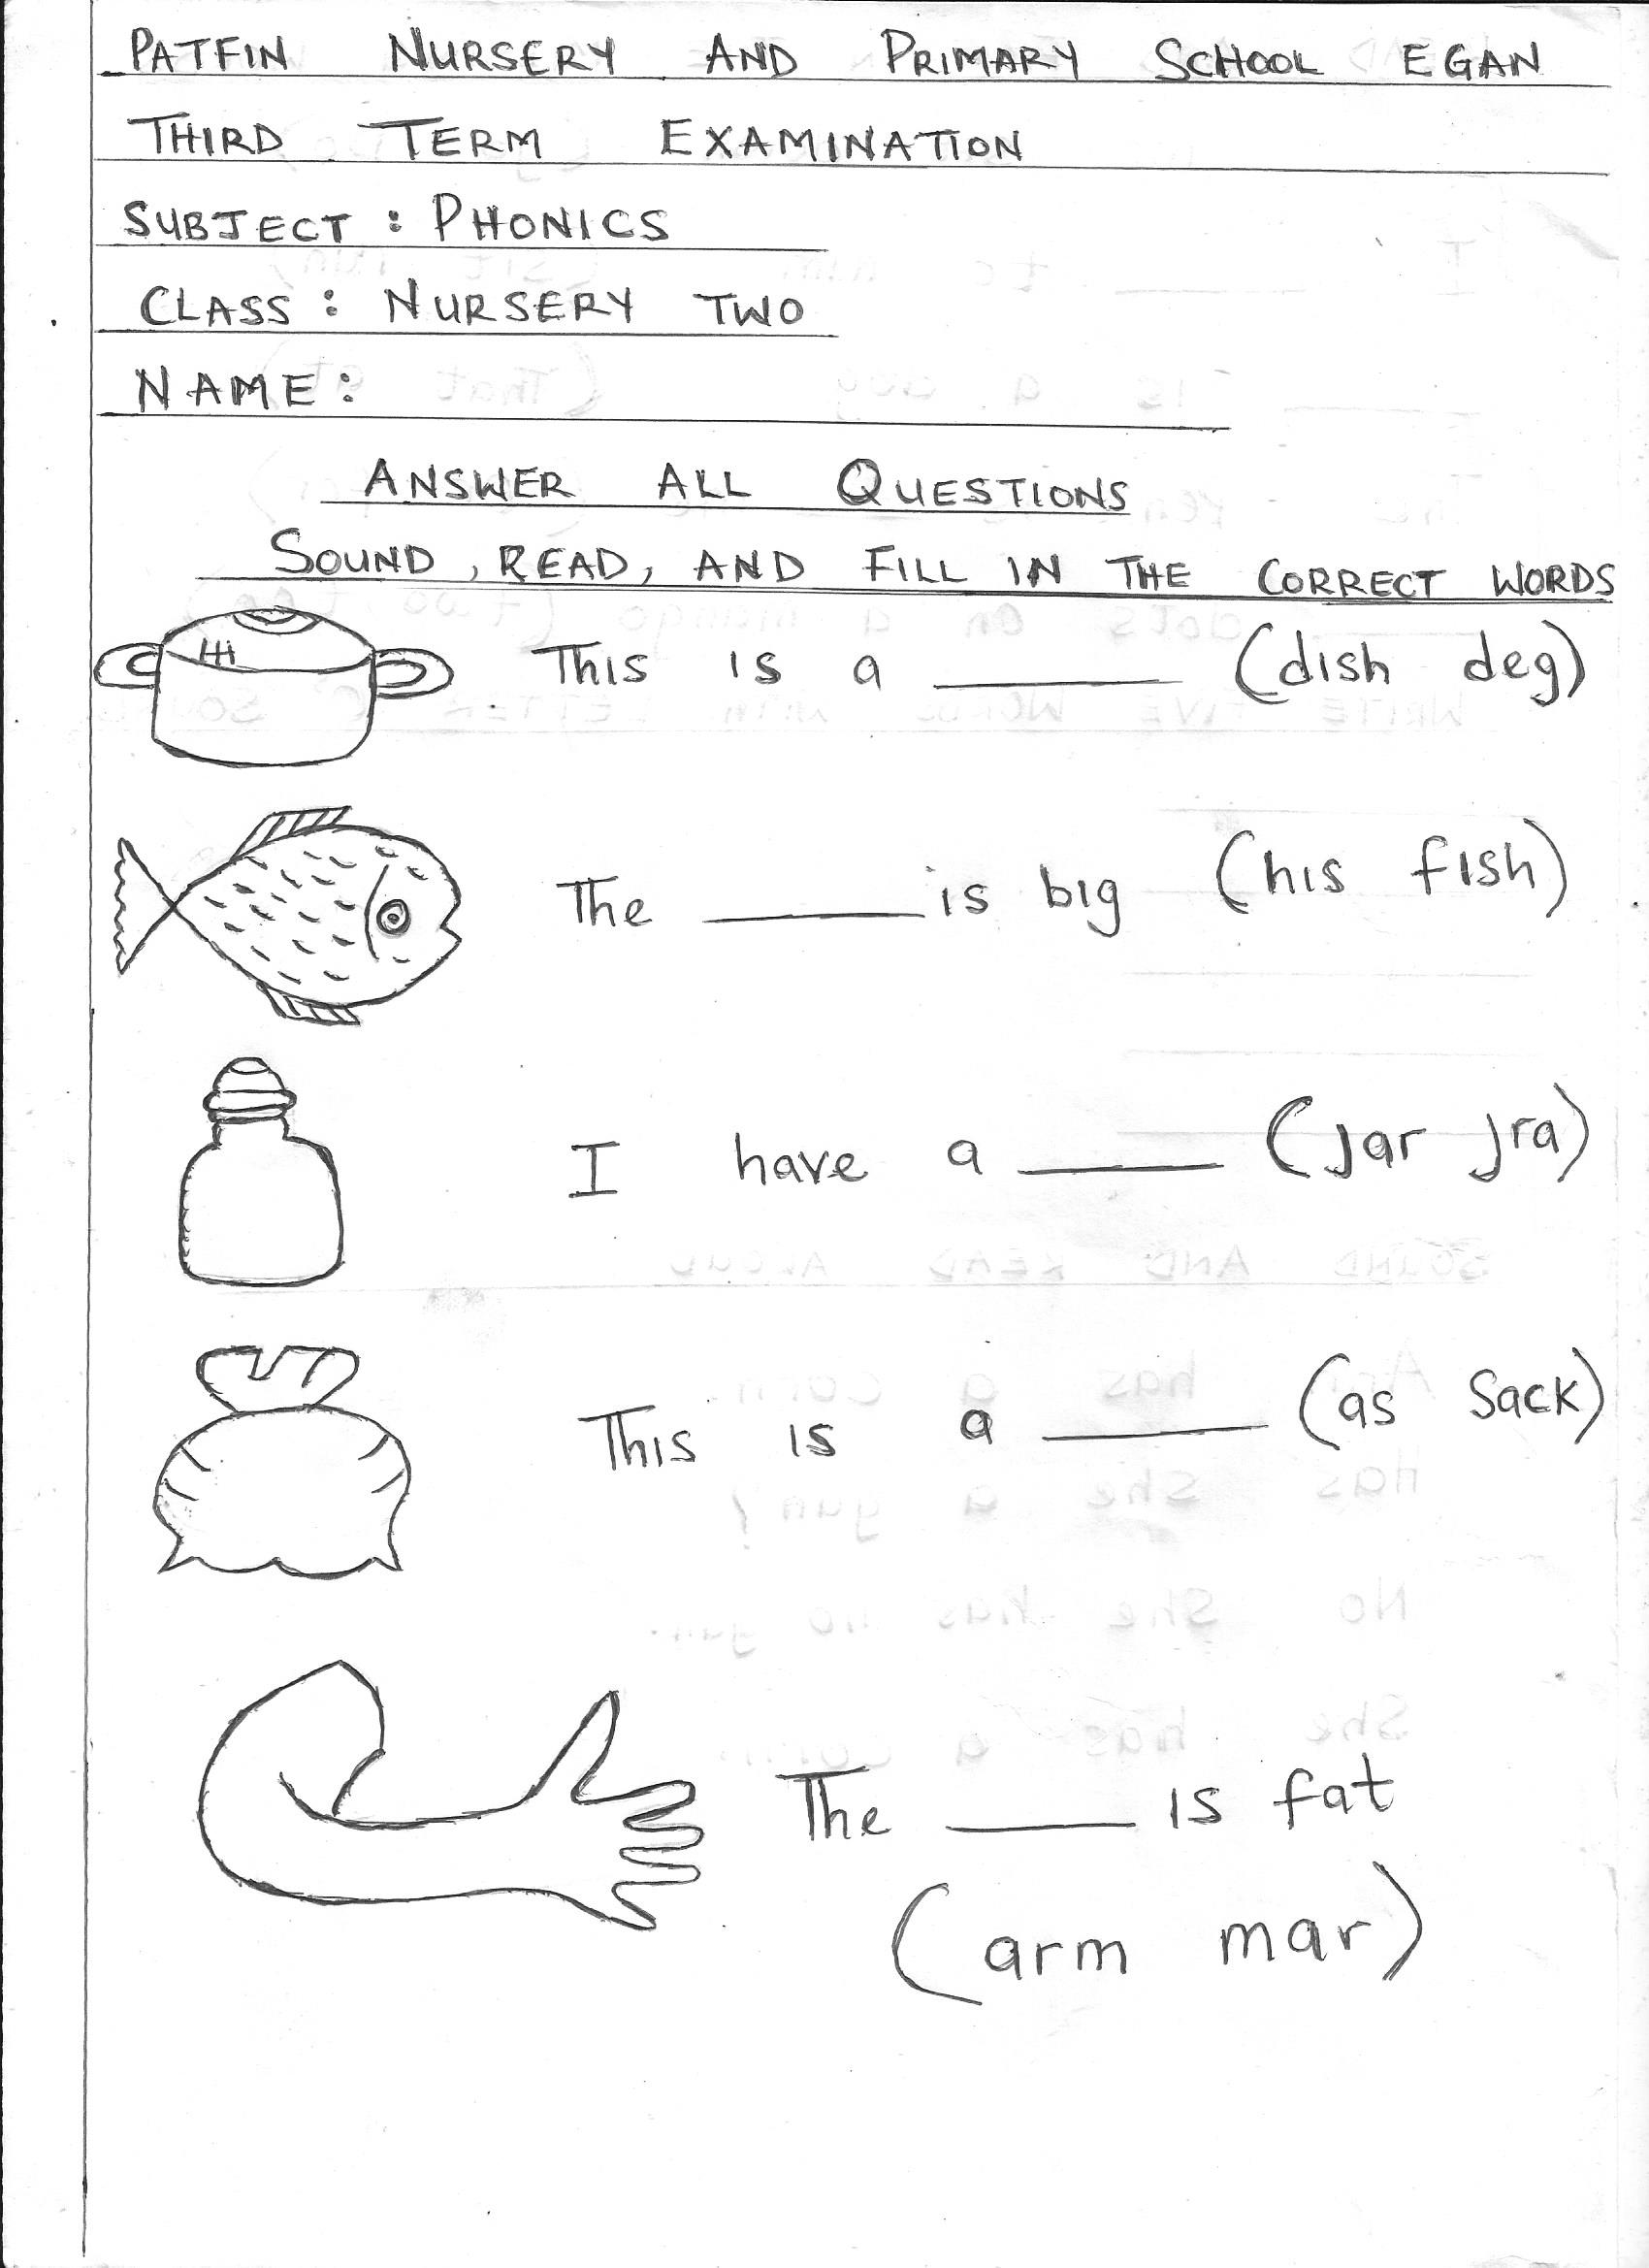 PATFIN NURSERY AND PRIMARY SCHOOL EGAN
THIRD TERM EXAMINATION
SUBJECT: PHONICS
CLASS: NURSERY TWO
NAME:
ANSWER ALL QUESTIONS
SOUND, READ, AND FILL IN THE CORRECT WORDS
This is a ______ (dish deg)
The ______ is big (his fish)
I have a ______ (jar jra)
This is a ______ (as sack)
The ______ is fat
(arm mar)